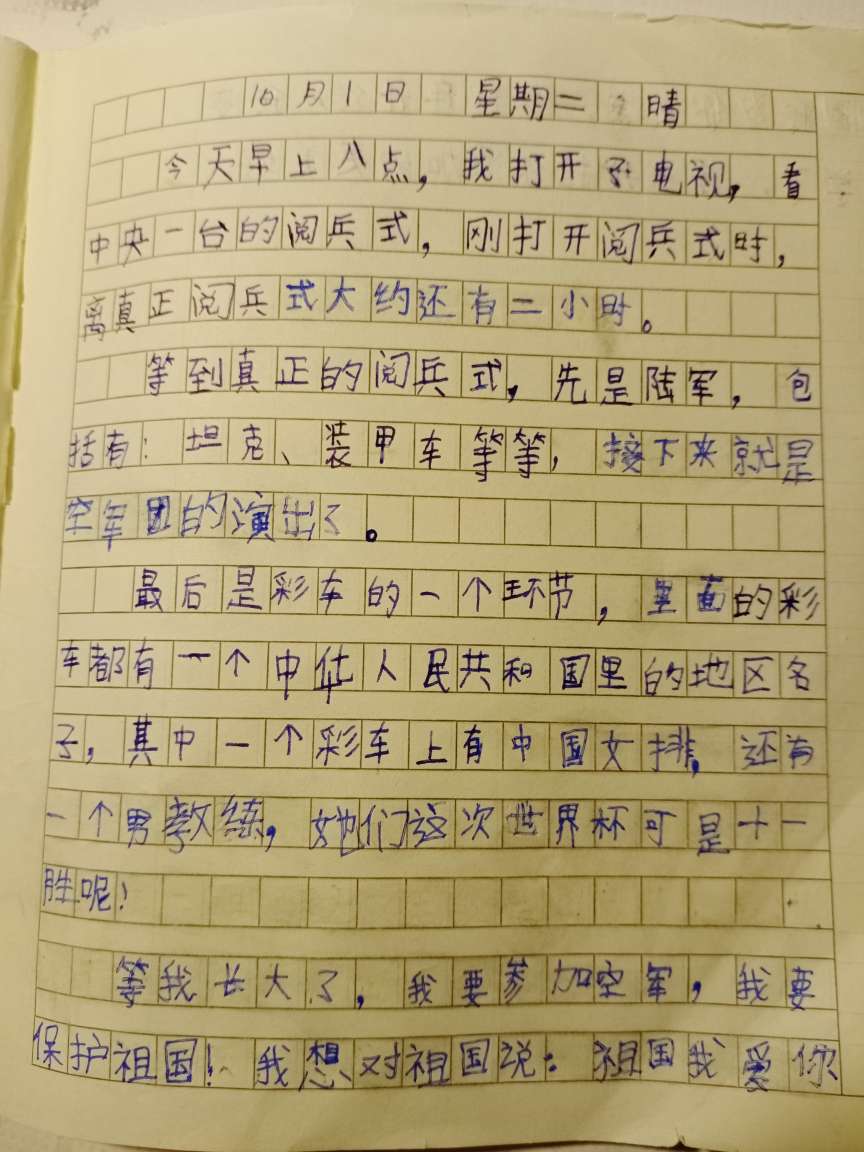 10月1日 星期二 晴
今天早上八点，我打开了电视，看
中央一台的阅兵式，刚打开阅兵式时，
离真正阅兵式大约还有二小时。
等到真正的阅兵式，先是陆军，包
括有：坦克、装甲车等等，接下来就是
空军团的演出了。
最后是彩车的一个环节，里面的彩
车都有一个中华人民共和国里的地区名
子，其中一个彩车上有中国女排，还有
一个男教练，她们这次世界杯可是十一
胜呢！
等我长大了，我要参加空军，我要
保护祖国！我想对祖国说：祖国我爱你